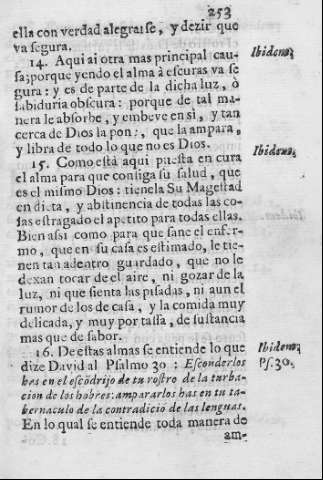 253
ella con verdad alegrarse, y dezir que
va segura.
14. Aqui ai otra mas principal cau-
sa; porque yendo el alma à escuras va se
gura: y es de parte de la dicha luz, ò
sabiduria obscura: porque de tal ma-
nera le absorbe, y embeve en sì, y tan
cerca de Dios la pone, que la ampara,
y libra de todo lo que no es Dios.
15. Como està aqui puesta en cura
el alma para que consiga su salud, que
es el mismo Dios: tienela Su Magestad
en dieta, y abstinencia de todas las co-
sas estragado el apetito para todas ellas.
Bien assi como para que sane el enfer-
mo, que en su casa es estimado, le tie-
nen tan adentro guardado, que no le
dexan tocar de el aire, ni gozar de la
luz, ni que sienta las pisadas, ni aun el
rumor de los de casa, y la comida muy
delicada, y muy por tassa, de sustancia
mas que de sabor.
16. De estas almas se entiende lo que
dize David al Psalmo 30: Esconderlos
has en el escõdrijo de tu rostro de la turba-
cion de los hõbres: ampararlos has en tu ta-
bernaculo de la contradiciõ de las lenguas.
En lo qual se entiende toda manera de
am-
Ibidem;
Ibidem,
Ibidem;
Ps. 30.